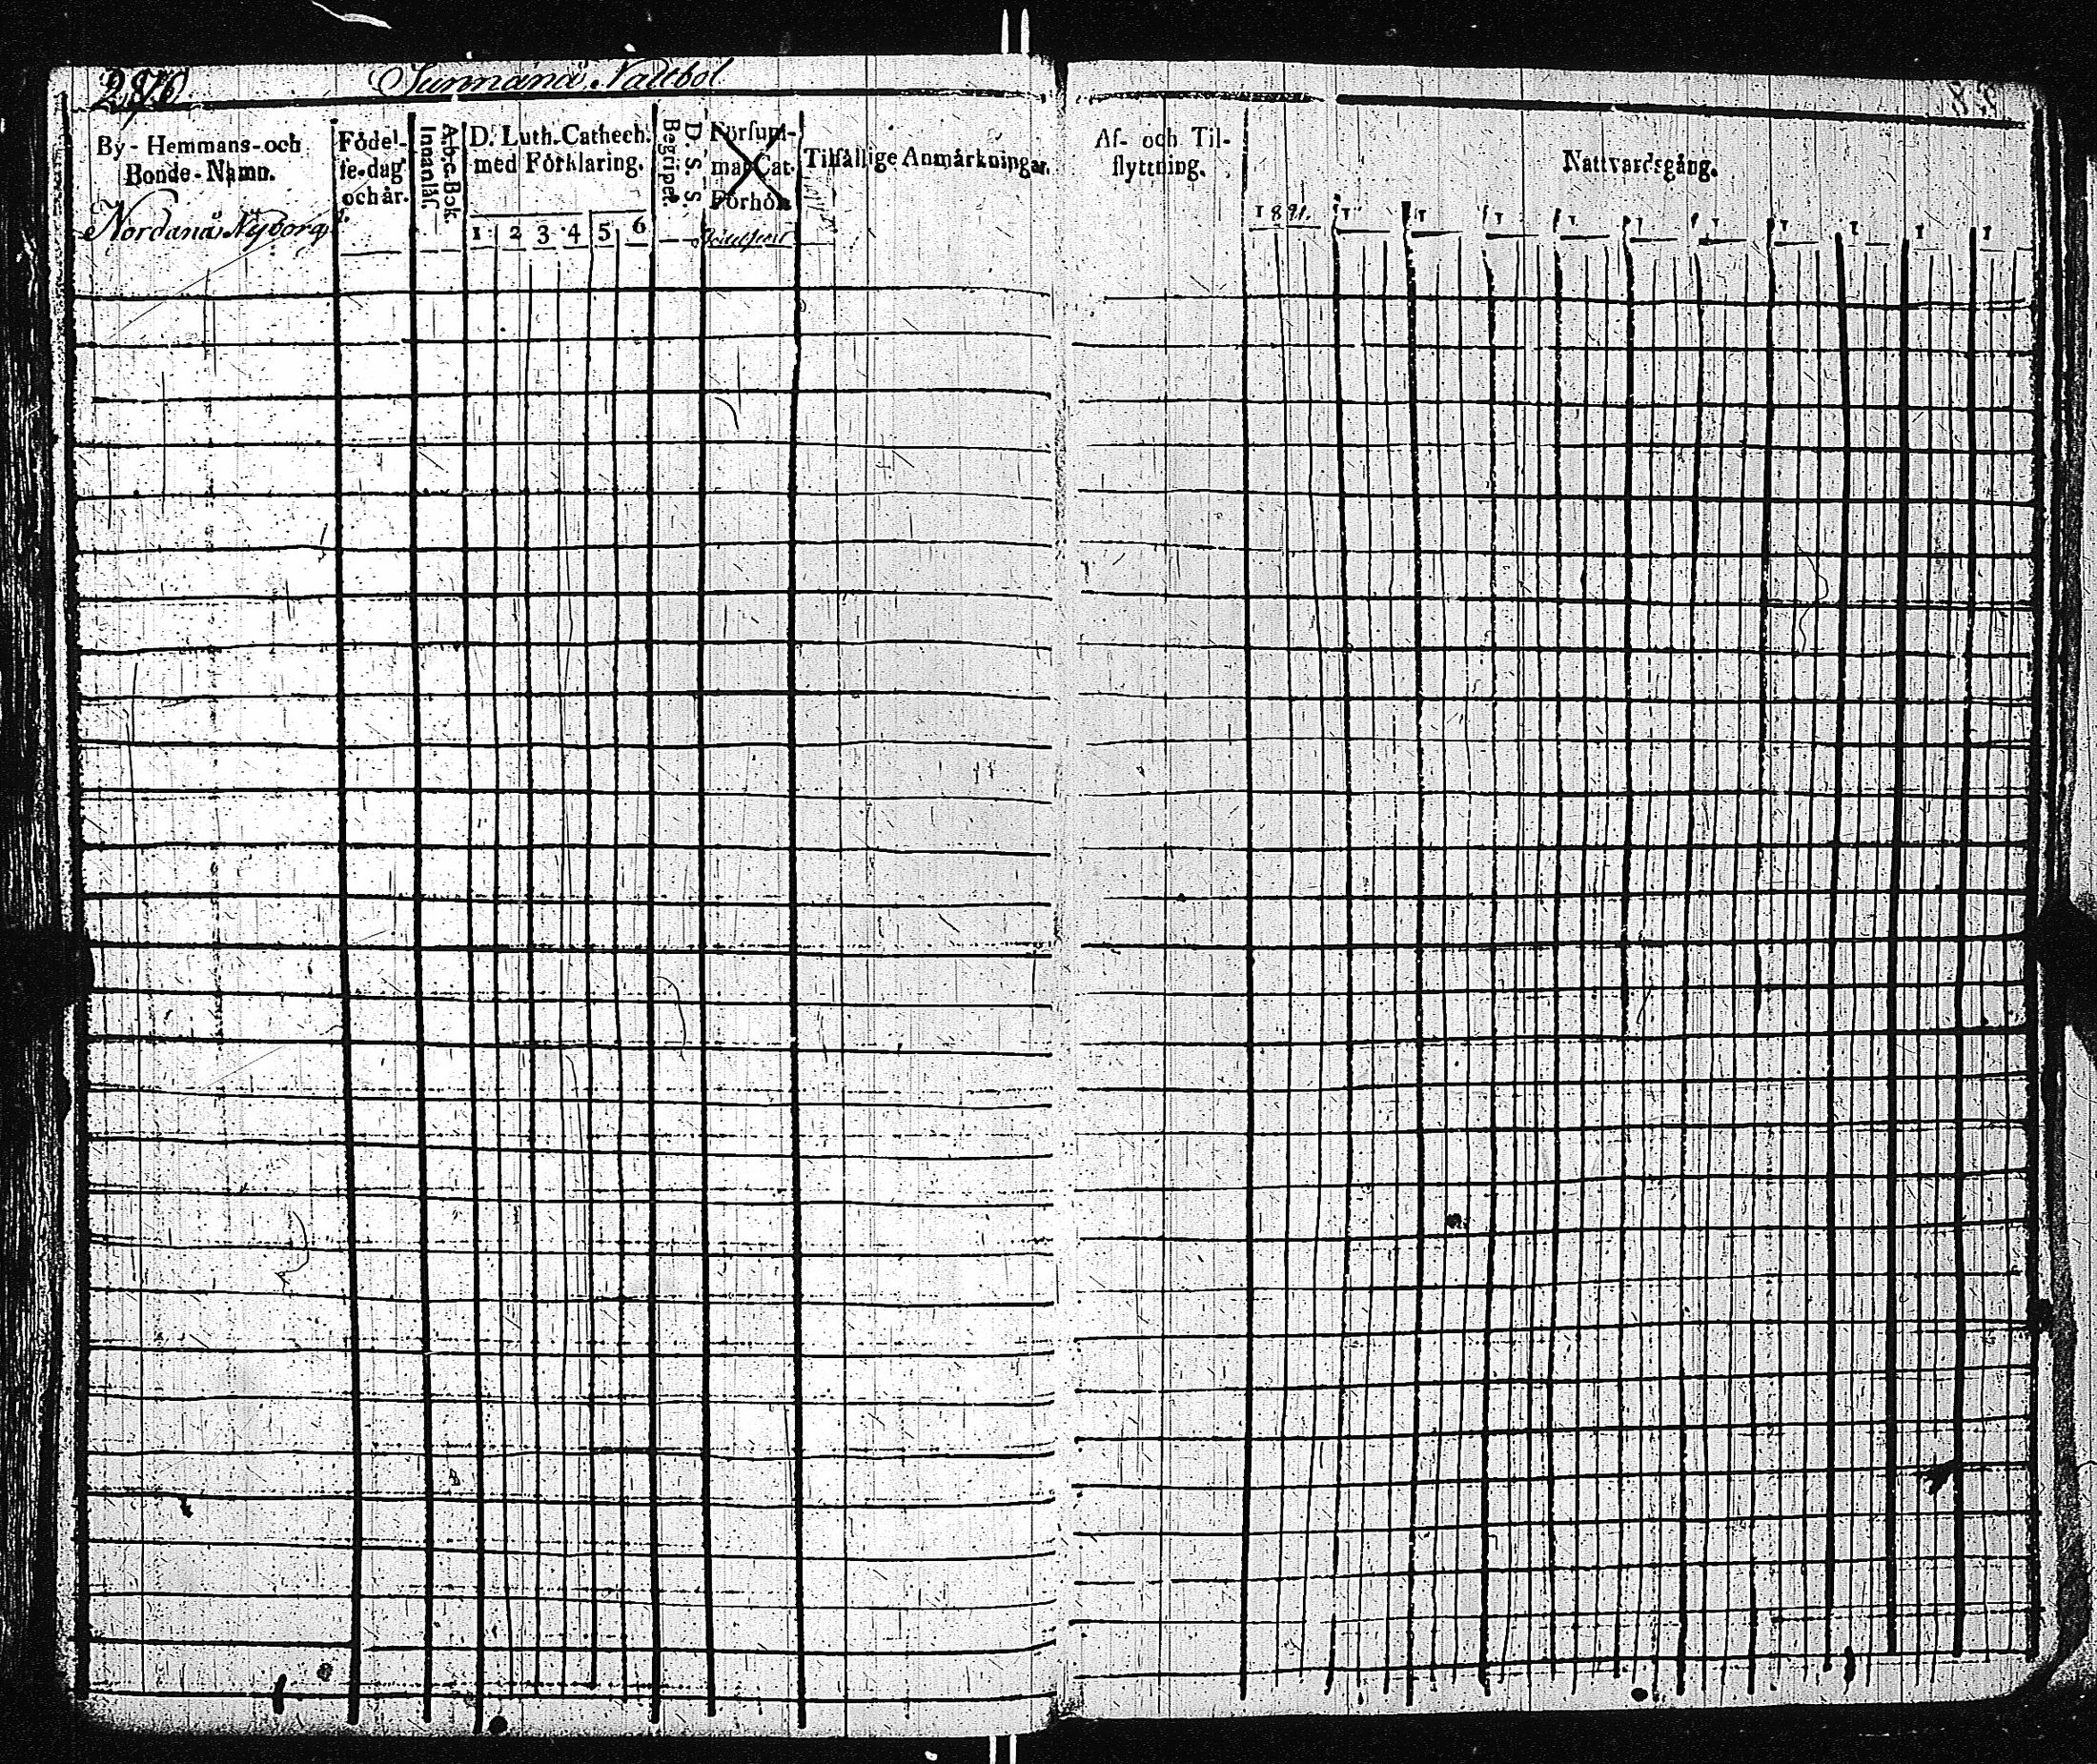 276 Sunnanå Nattbol
By - Hemmans- och
Bonde - Namn.
Nordanå Nyborg
Födel-
se-dag
och år.
A.b.c. Bok.
Innanläs.
D. Luth. Cathech.
med Förklaring.
1 2 3 4 5 6
D. S. S.
Begripet.
Försum-
ma Cat.
Förhör
Tilfällige Anmärkningar.
Af- och Til-
flyttning.
Nattvardsgång.
1 1 1 1 1 1 1 1 1 1 1